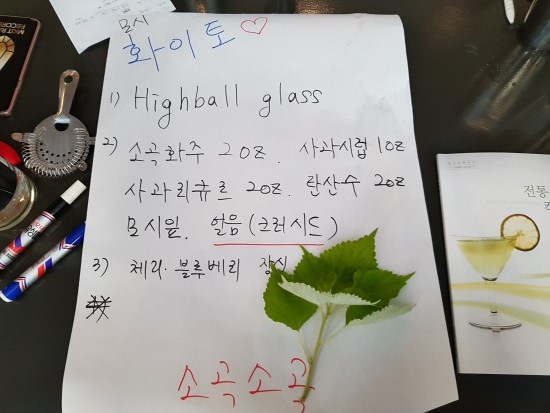 모시
화이토 ♡
1) Highball glass
2) 소곡화주 2oz. 사과시럽 1oz
사과리큐르 2oz. 탄산수 2oz
모시잎. 얼음(크러시드)
3) 체리·블루베리 장식
소곡소곡
전통